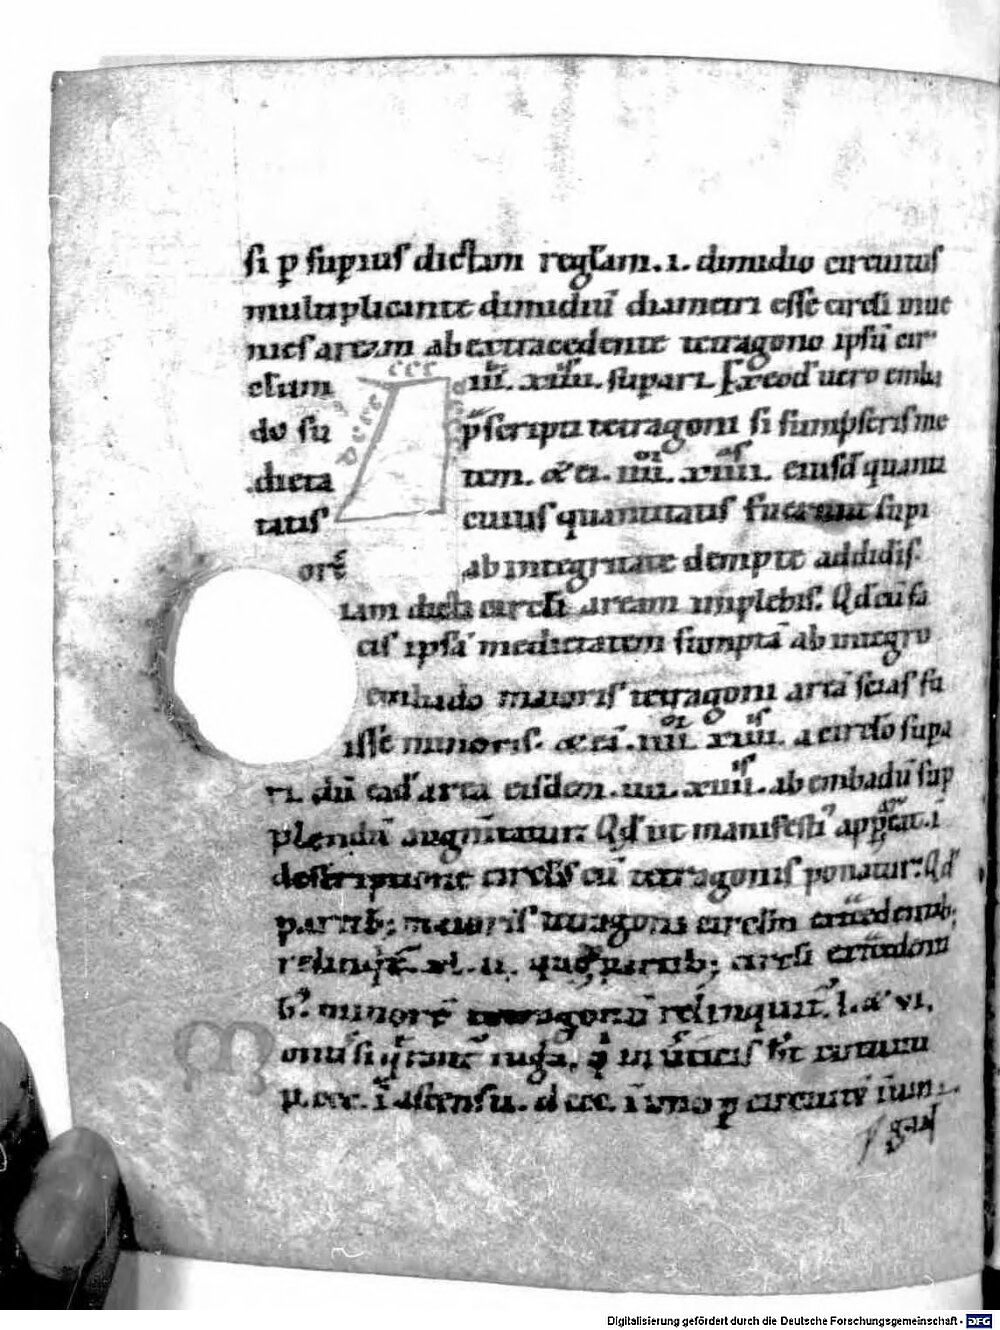 si p supius dictam reglam. i. dimidio circuitus
multiplicante dimidiū diametri esse circli inue
nies aream ab extra cedente tetragono ipsū cir
clum iiii. xiiii. supari. Ex eod uero emba
do su p̄scripti tetragoni si sumpseris me
dieta tem. & ei. iiii. xiiii. eiusd quanti
tatis cuius quantitatis fuerant supi
orē ab integritate dempte addidis.
tam dicti circli aream implebis. Qd cū fa
cis ipsā medietatem sumptā ab integro
embado maioris tetragoni areā scias fu
isse minoris. & ei. iiii. xiiii. a circlo supa
ri. dū ead area eisdem. iiii. xiiii. ab embadū sup
plendū augmtatur: Qd ut manifesti appareat. i
descriptione circlis cū tetragonis ponatur: Qd
partib; maioris tetragoni circlm excedentib;
relinq̄t. xl. ii. partib; circli excedenti
b; minorē tetragonū relinquūt. l. a vi.
M ontis iuga.
p. ccc. ī ascensu. d ccc. ī uno p circuitū
Digitalisierung gefördert durch die Deutsche Forschungsgemeinschaft - DFG